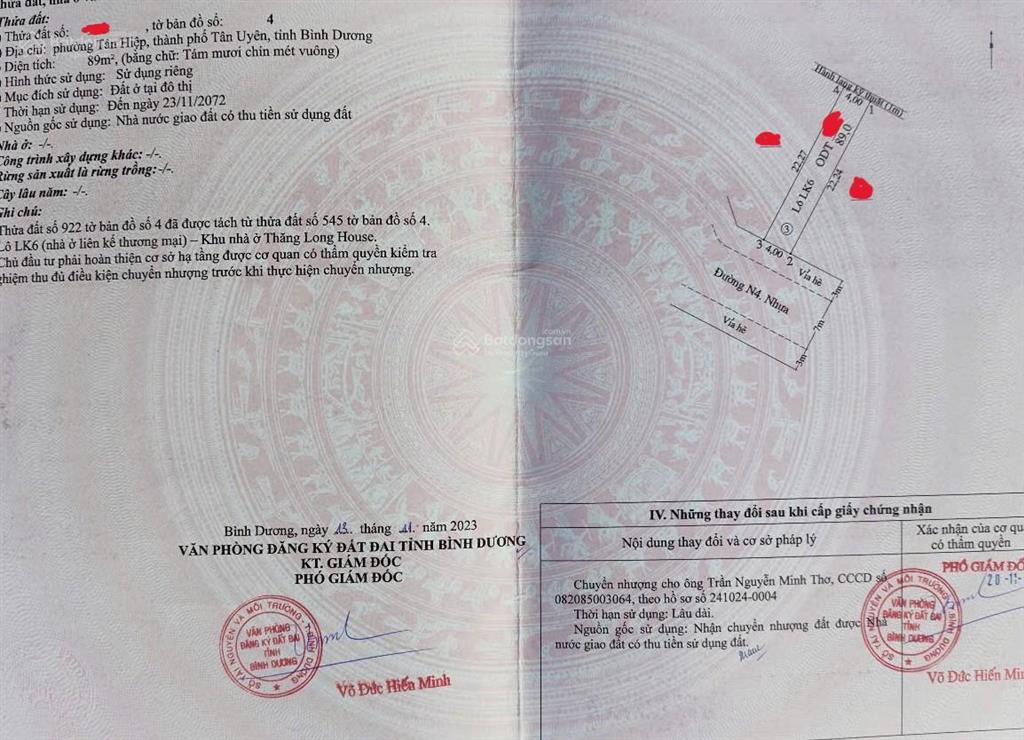 Thửa đất:
Thửa đất số: , tờ bản đồ số: 4
Địa chỉ: phường Tân Hiệp, thành phố Tân Uyên, tỉnh Bình Dương
Diện tích: 89m², (bằng chữ: Tám mươi chín mét vuông)
Hình thức sử dụng: Sử dụng riêng
Mục đích sử dụng: Đất ở tại đô thị
Thời hạn sử dụng: Đến ngày 23/11/2072
Nguồn gốc sử dụng: Nhà nước giao đất có thu tiền sử dụng đất
Nhà ở: -/-.
Công trình xây dựng khác: -/-.
Rừng sản xuất là rừng trồng: -/-.
Cây lâu năm: -/-.
Ghi chú:
Thửa đất số 922 tờ bản đồ số 4 đã được tách từ thửa đất số 545 tờ bản đồ số 4.
Lô LK6 (nhà ở liên kế thương mại) – Khu nhà ở Thăng Long House.
Chủ đầu tư phải hoàn thiện cơ sở hạ tầng được cơ quan có thẩm quyền kiểm tra
nghiệm thu đủ điều kiện chuyển nhượng trước khi thực hiện chuyển nhượng.
Hành lang kỹ thuật (1m)
4 4,00 1
22,27
Lô LK6 ODT 89.0
22,24
3
3 4,00 2
Vỉa hè
3m
Đường N4, Nhựa
7m
Vỉa hè
3m
Batdongsan
.com.vn
Bình Dương, ngày 13 tháng 11 năm 2023
VĂN PHÒNG ĐĂNG KÝ ĐẤT ĐAI TỈNH BÌNH DƯƠNG
KT. GIÁM ĐỐC
PHÓ GIÁM ĐỐC
SỞ TÀI NGUYÊN VÀ MÔI TRƯỜNG - TỈNH BÌNH DƯƠNG
VĂN PHÒNG
ĐĂNG KÝ ĐẤT ĐAI
TỈNH
BÌNH DƯƠNG
Võ Đức Hiến Minh
IV. Những thay đổi sau khi cấp giấy chứng nhận
Nội dung thay đổi và cơ sở pháp lý
Xác nhận của cơ qu
có thẩm quyền
Chuyển nhượng cho ông Trần Nguyễn Minh Thơ, CCCD số
082085003064, theo hồ sơ số 241024-0004
Thời hạn sử dụng: Lâu dài.
Nguồn gốc sử dụng: Nhận chuyển nhượng đất được Nhà
nước giao đất có thu tiền sử dụng đất.
PHÓ GIÁM ĐỐ
20-11-
SỞ TÀI NGUYÊN VÀ MÔI TRƯỜNG - TỈNH BÌNH DƯƠNG
VĂN PHÒNG
ĐĂNG KÝ ĐẤT ĐAI
TỈNH
BÌNH DƯƠNG
Võ Đức Hiến Min